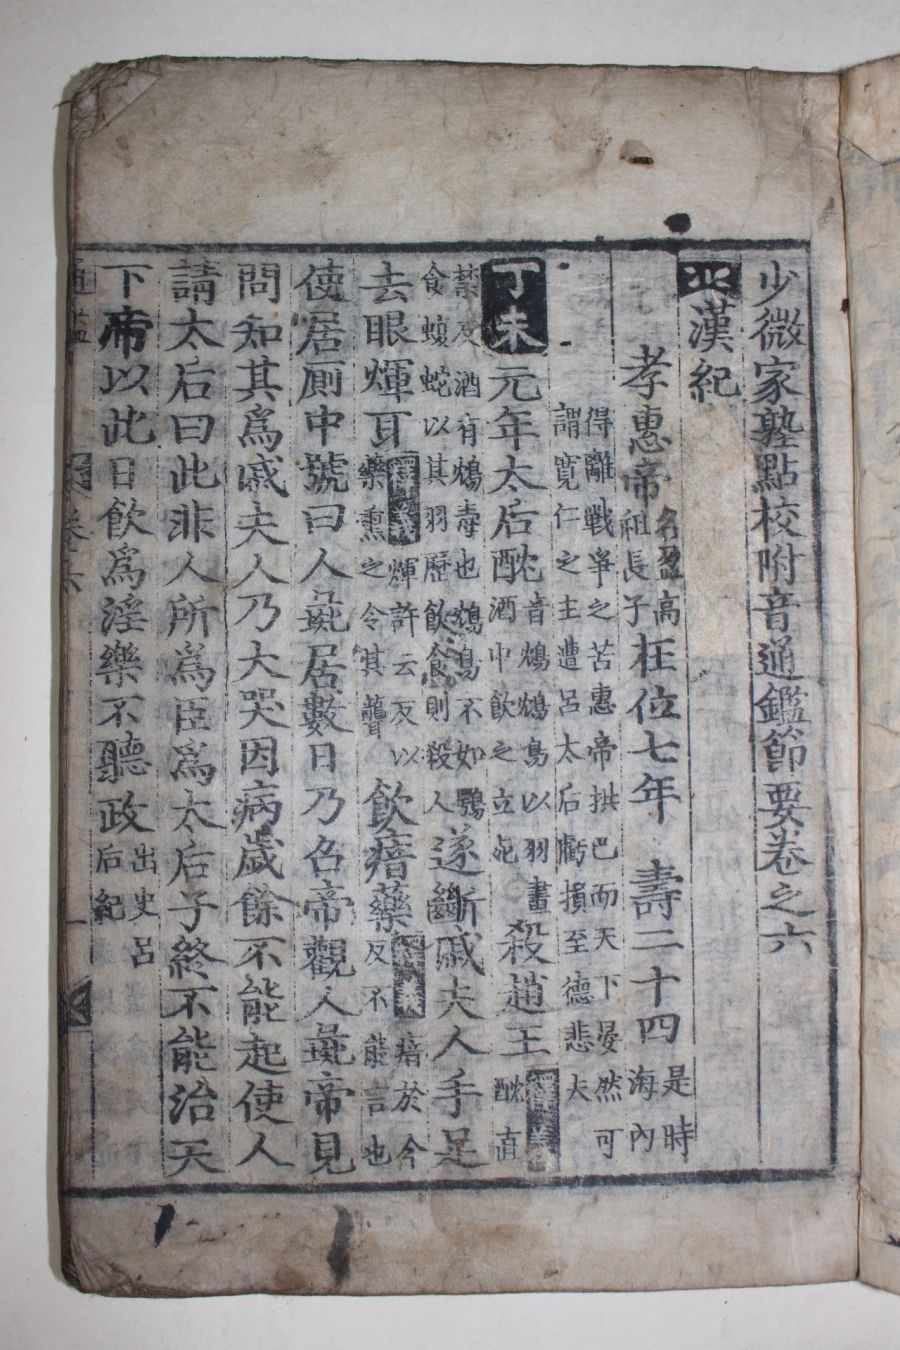 少微家塾點校附音通鑑節要卷之六
漢紀
孝惠帝名盈高祖長子在位七年 壽二十四是時海內
得離戰爭之苦惠帝拱己而天下晏然可
謂寬仁之主遭呂太后虧損至德悲夫
丁未元年太后酖音鴆鴆鳥以羽畫酒中飲之立死殺趙王釋義酖直
禁反酒有鴆毒也鴆鳥不如鶚食蝮蛇以其羽歷飲食則殺人遂斷戚夫人手足
去眼煇耳釋義煇許云反以藥熏之令其聾飮瘖藥釋義瘖於今反不能言也
使居厠中號曰人彘居數日乃召帝觀人彘帝見
問知其爲戚夫人乃大哭因病歲餘不能起使人
請太后曰此非人所爲臣爲太后子終不能治天
下帝以此日飮爲淫樂不聽政出史呂后紀
通鑑 卷六 一